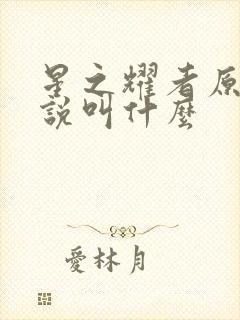 星之耀者原
說叫什麼
愛林月